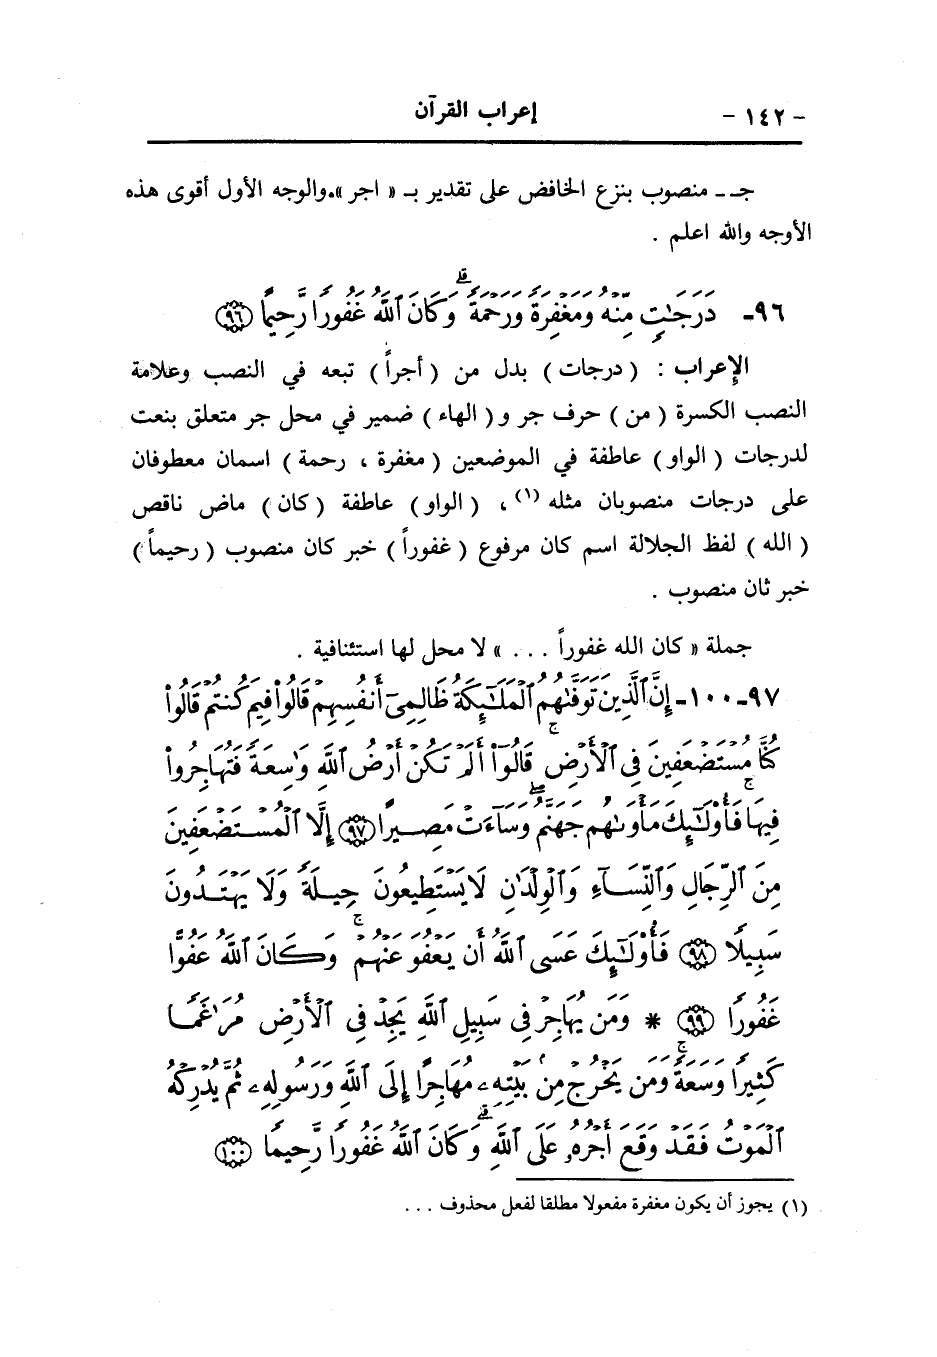 - ١٤٢ - إعراب القرآن
جـ ـ منصوب بنزع الخافض على تقدير بـ « اجر ».والوجه الأول أقوى هذه
الأوجه والله اعلم .
٩٦- دَرَجَٰتٍ مِّنْهُ وَمَغْفِرَةً وَرَحْمَةً ۚ وَكَانَ ٱللَّهُ غَفُورًا رَّحِيمًا ﴿٩٦﴾
الإعراب : ( درجات ) بدل من ( أجراً ) تبعه في النصب وعلامة
النصب الكسرة ( من ) حرف جر و( الهاء ) ضمير في محل جر متعلق بنعت
لدرجات ( الواو ) عاطفة في الموضعين ( مغفرة ، رحمة ) اسمان معطوفان
على درجات منصوبان مثله (١) ، ( الواو ) عاطفة ( كان ) ماض ناقص
( الله ) لفظ الجلالة اسم كان مرفوع ( غفوراً ) خبر كان منصوب ( رحيماً )
خبر ثان منصوب .
جملة « كان الله غفوراً . . . » لا محل لها استئنافية .
٩٧-١٠٠- إِنَّ ٱلَّذِينَ تَوَفَّىٰهُمُ ٱلْمَلَٰٓئِكَةُ ظَالِمِىٓ أَنفُسِهِمْ قَالُوا۟ فِيمَ كُنتُمْ ۖ قَالُوا۟
كُنَّا مُسْتَضْعَفِينَ فِى ٱلْأَرْضِ ۚ قَالُوٓا۟ أَلَمْ تَكُنْ أَرْضُ ٱللَّهِ وَٰسِعَةً فَتُهَاجِرُوا۟
فِيهَا ۚ فَأُو۟لَٰٓئِكَ مَأْوَىٰهُمْ جَهَنَّمُ ۖ وَسَآءَتْ مَصِيرًا ﴿٩٧﴾ إِلَّا ٱلْمُسْتَضْعَفِينَ
مِنَ ٱلرِّجَالِ وَٱلنِّسَآءِ وَٱلْوِلْدَٰنِ لَا يَسْتَطِيعُونَ حِيلَةً وَلَا يَهْتَدُونَ
سَبِيلًا ﴿٩٨﴾ فَأُو۟لَٰٓئِكَ عَسَى ٱللَّهُ أَن يَعْفُوَ عَنْهُمْ ۚ وَكَانَ ٱللَّهُ عَفُوًّا
غَفُورًا ﴿٩٩﴾ * وَمَن يُهَاجِرْ فِى سَبِيلِ ٱللَّهِ يَجِدْ فِى ٱلْأَرْضِ مُرَٰغَمًا
كَثِيرًا وَسَعَةً ۚ وَمَن يَخْرُجْ مِنۢ بَيْتِهِۦ مُهَاجِرًا إِلَى ٱللَّهِ وَرَسُولِهِۦ ثُمَّ يُدْرِكْهُ
ٱلْمَوْتُ فَقَدْ وَقَعَ أَجْرُهُۥ عَلَى ٱللَّهِ ۗ وَكَانَ ٱللَّهُ غَفُورًا رَّحِيمًا ﴿١٠٠﴾
(١) يجوز أن يكون مغفرة مفعولا مطلقا لفعل محذوف . . .